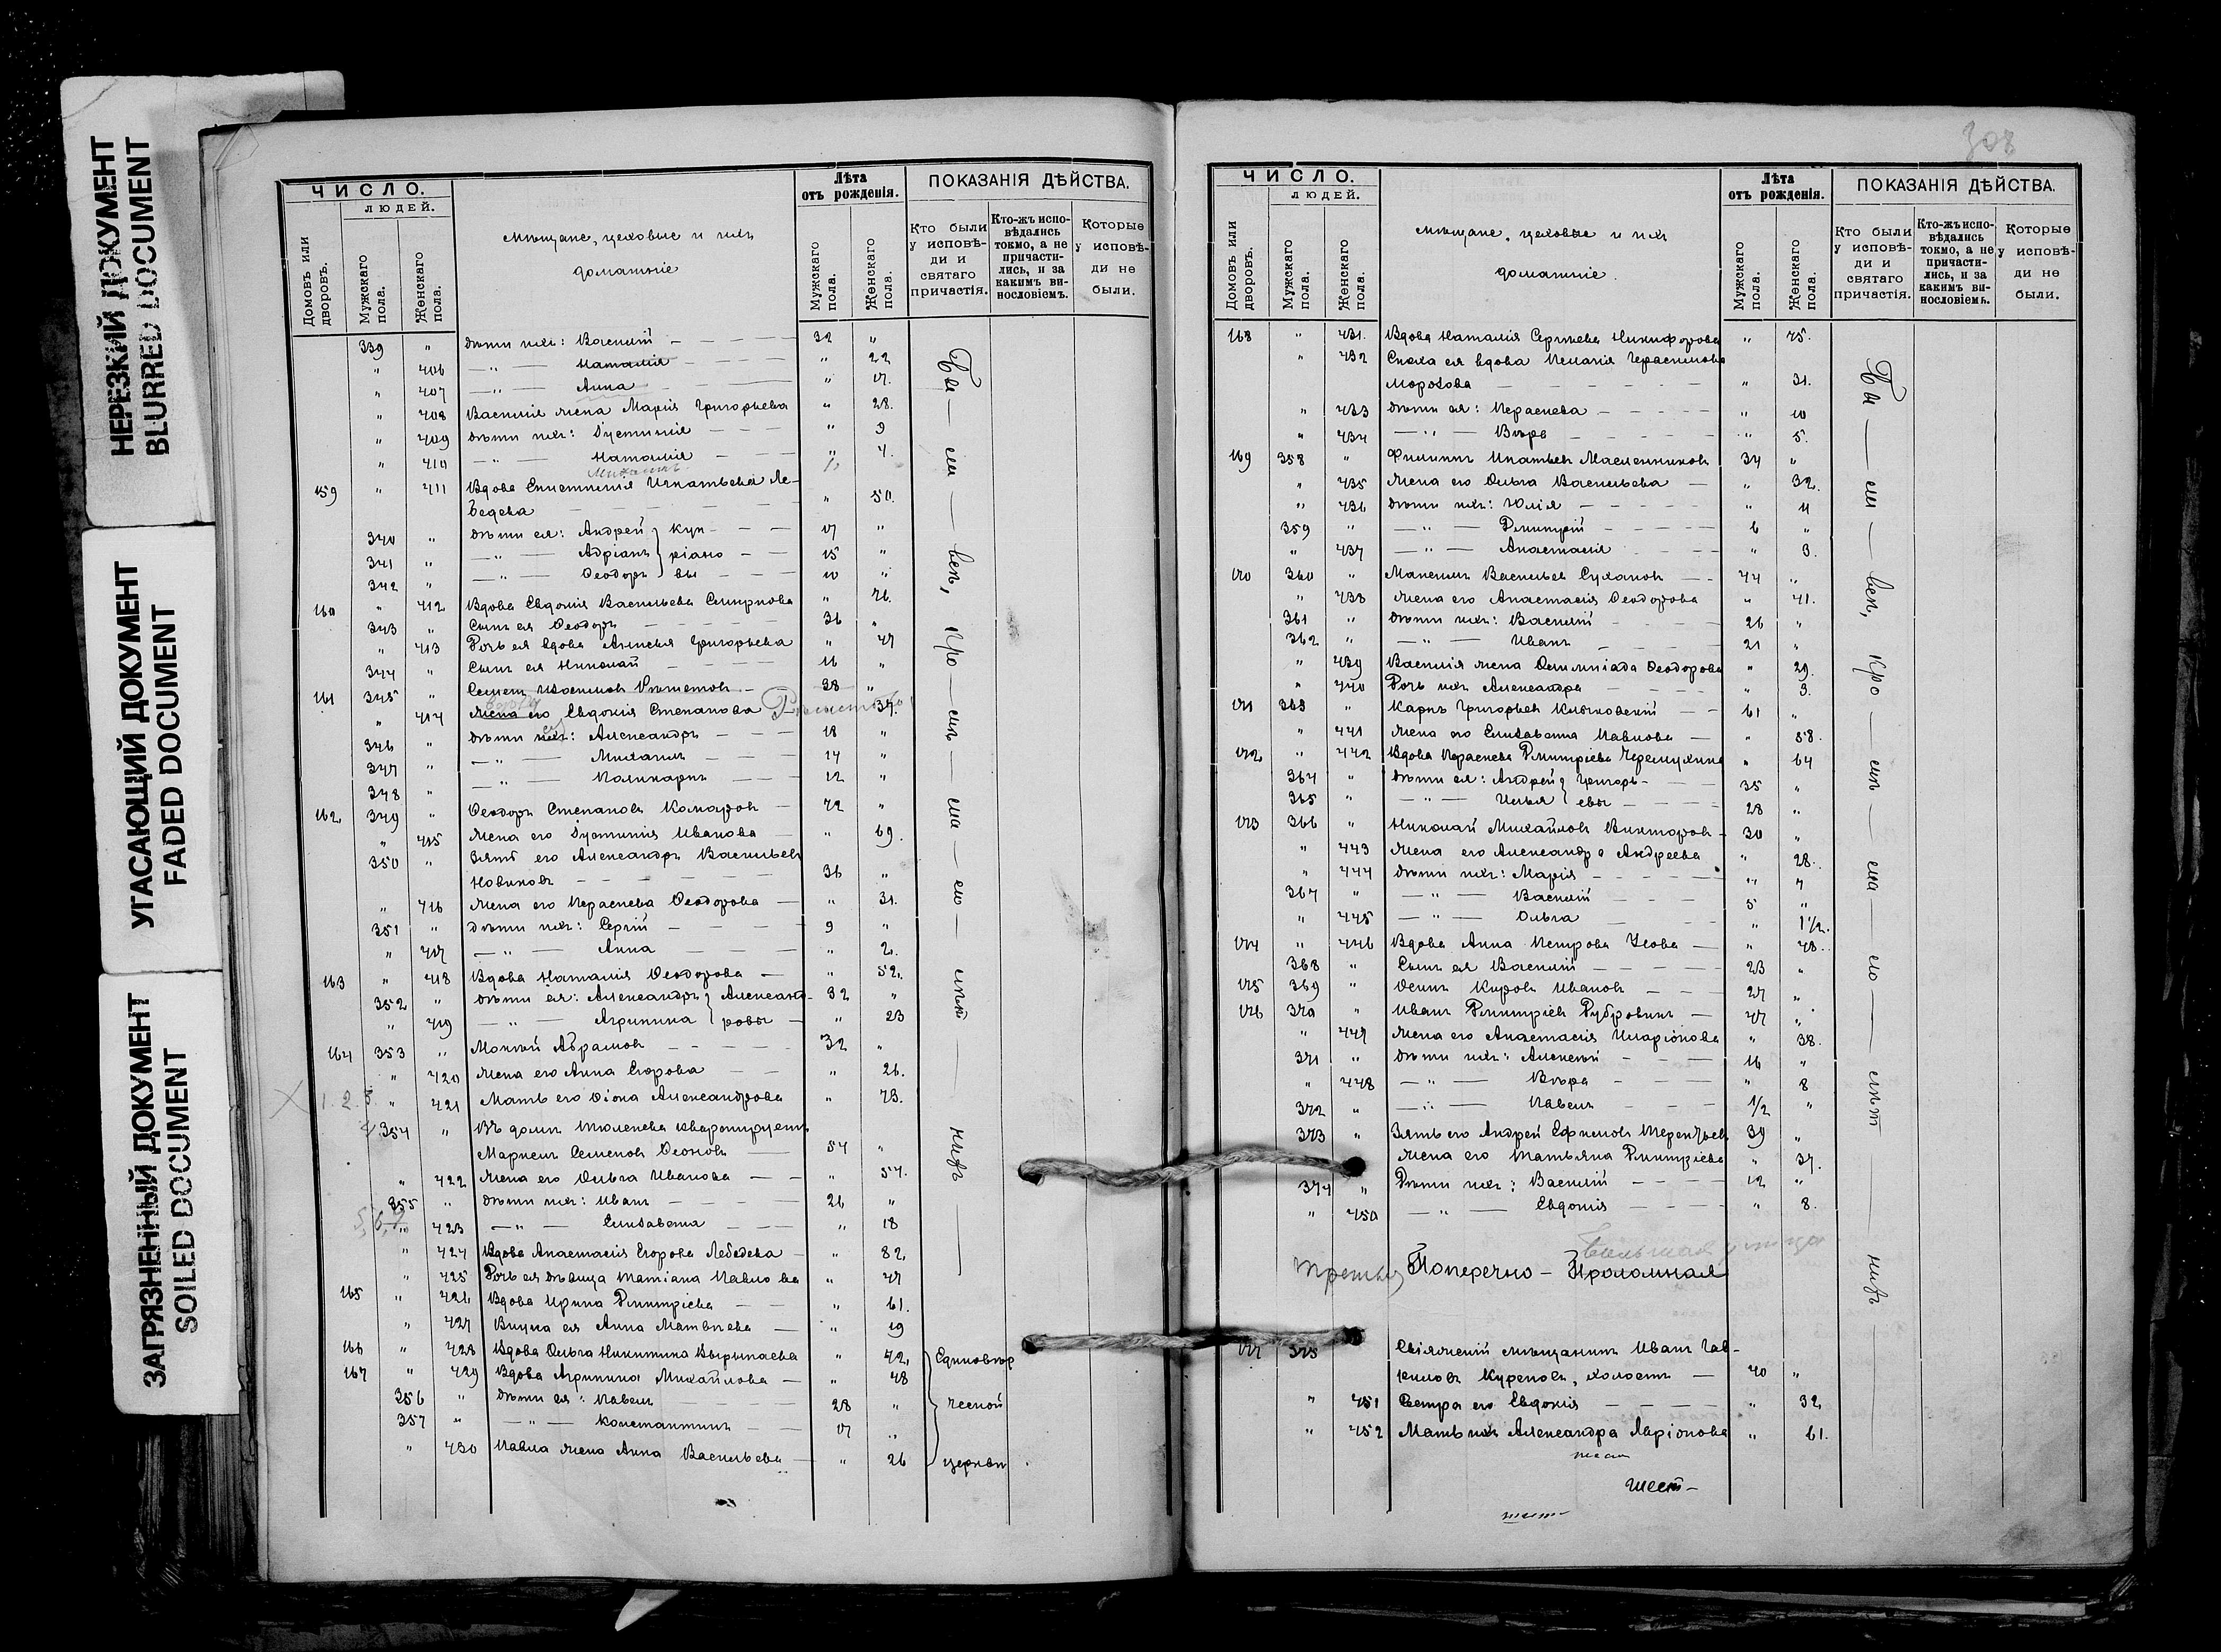 НЕРЕЗКИЙ ДОКУМЕНТ
BLURRED DOCUMENT
УГАСАЮЩИЙ ДОКУМЕНТ
FADED DOCUMENT
ЗАГРЯЗНЕННЫЙ ДОКУМЕНТ
SOILED DOCUMENT
ЧИСЛО.
ЛЮДЕЙ.
Домовъ или дворовъ.
Мужскаго пола.
Женскаго пола.
Мѣщане, цеховые и ихъ
домашніе
Лѣта
отъ рожденія.
Мужскаго пола.
Женскаго пола.
ПОКАЗАНІЯ ДѢЙСТВА.
Кто были у исповѣди и святаго причастія.
Кто-жъ исповѣдались токмо, а не причастились, и за какимъ винословіемъ.
Которые у исповѣди не были.
339 " Дѣти ихъ: Василій 32 "
" 406 — " — Наталія " 22
" 407 — " — Анна " 17.
" 408 Василія жена Марія Григорьева " 28.
" 409 Дѣти ихъ: Іустинія " 9
" 410 — " — Наталія " 4.
159 " 411 Вдова Епистимія Игнатьева Ле-
бедева " 50.
340 " Дѣти ея: Андрей } Кип- 17 "
341 " — " — Адріанъ } ріано 15 "
342 " — " — Ѳеодоръ } вы 10 "
160 " 412 Вдова Евдокія Васильева Смирнова " 76.
343 " Сынъ ея Ѳеодоръ 36 "
" 413 Дочь ея вдова Агнія Григорьева " 47
344 " Сынъ ея Николай 16 "
161 345 " 38 "
" 414 Жена его Евдокія Степанова 37.
346 " Дѣти ихъ: Александръ 18 "
347 " — " — Михаилъ 14 "
348 " — " — Поликарпъ 12 "
162 349 " Ѳеодоръ Степановъ Комаровъ 72 "
" 415 Жена его Іустинія Иванова " 69.
350 " Зять его Александръ Васильевъ
Новиковъ 36 "
" 416 Жена его Параскева Ѳеодорова " 31.
351 " Дѣти ихъ: Сергій 9 "
" 417 — " — Анна " 2.
163 " 418 Вдова Наталія Ѳеодорова " 52.
352 " Дѣти ея: Александръ } Александ- 32 "
" 419 — " — Агрипина } ровы " 23
164 353 " Мокій Абрамовъ 32 "
" 420 Жена его Анна Егорова " 26.
1. 2. 3. " 421 Мать его Ѳіона Александрова " 73.
354 " Въ домѣ Тюленева квартируетъ
Маркелъ Семеновъ Ѳеоновъ 54 "
" 422 Жена его Ольга Иванова " 57.
355 " Дѣти ихъ: Иванъ 26 "
" 423 — " — Елизавета " 18
" 424 Вдова Анастасія Егорова Лебедева " 82.
" 425 Дочь ея дѣвица Татіана Павлова " 47
165 " 426 Вдова Ирина Дмитріева " 61.
" 427 Внука ея Анна Матвѣева " 19
166 " 428 Вдова Ольга Никитина Вырыпаева " 72.
167 " 429 Вдова Агрипина Михайлова " 48
356 " Дѣти ея: Павелъ 28 "
357 " — " — Константинъ 17 "
" 430 Павла жена Анна Васильева " 26
Единовѣр
ческой
церкви
Бы — ли — всѣ, кро —
ЧИСЛО.
ЛЮДЕЙ.
Домовъ или дворовъ.
Мужскаго пола.
Женскаго пола.
Мѣщане, цеховые и ихъ
домашніе.
Лѣта
отъ рожденія.
Мужскаго пола.
Женскаго пола.
ПОКАЗАНІЯ ДѢЙСТВА.
Кто были у исповѣди и святаго причастія.
Кто-жъ исповѣдались токмо, а не причастились, и за какимъ винословіемъ.
Которые у исповѣди не были.
168 " 431. Вдова Наталія Сергѣева Никифорова " 75.
" 432 Сноха ея вдова Пелагія Герасимова
Морозова " 31.
" 433 Дѣти ея: Параскева " 10
" 434 — " — Вѣра " 5.
169 358 " Филиппъ Игнатьевъ Масленниковъ 34 "
" 435 Жена его Ольга Васильева " 32.
" 436 Дѣти ихъ: Юлія " 11
359 " — " — Димитрій 6 "
" 437 — " — Анастасія " 3.
170 360 " Максимъ Васильевъ Сухановъ 44 "
" 438 Жена его Анастасія Ѳеодорова " 41.
361 " Дѣти ихъ: Василій 26 "
362 " — " — Иванъ 21 "
" 439 Василія жена Олимпіада Ѳеодорова " 29.
" 440 Дочь ихъ Александра " 3.
171 363 " Карпъ Григорьевъ Клочковскій 61 "
" 441 Жена его Елизавета Павлова " 58.
172 " 442 Вдова Параскева Димитріева Черемухина " 64
364 " Дѣти ея: Андрей } Григорь- 35 "
365 " — " — Илья } евы 28 "
173 366 " Николай Михайловъ Викторовъ 30 "
" 443 Жена его Александра Андреева " 28.
" 444 Дѣти ихъ: Марія " 7
367 " — " — Василій 5 "
" 445 — " — Ольга " 1½.
174 " 446 Вдова Анна Петрова Усова " 48.
368 " Сынъ ея Василій 23 "
175 369 " Осипъ Кировъ Ивановъ 27 "
176 370 " Иванъ Димитріевъ Дубровинъ 47 "
" 447 Жена его Анастасія Иларіонова " 38.
371 " Дѣти ихъ: Алексѣй 16 "
" 448 — " — Вѣра " 8
372 " — " — Павелъ 1/2 "
373 " Зять его Андрей Ефимовъ Терентьевъ 39 "
Жена его Татьяна Димитріева " 37.
374 " Дѣти ихъ: Василій 12 "
" 450 — " — Евдокія " 8.
Большая улица
третья Поперечно-Проломная
177 375 Свіяжскій мѣщанинъ Иванъ Гав-
риловъ Куреновъ, холостъ 40 "
" 451 Сестра его Евдокія " 32
" 452 Мать ихъ Александра Ларіонова " 61.
шест-
Бы — ли — всѣ, кро —